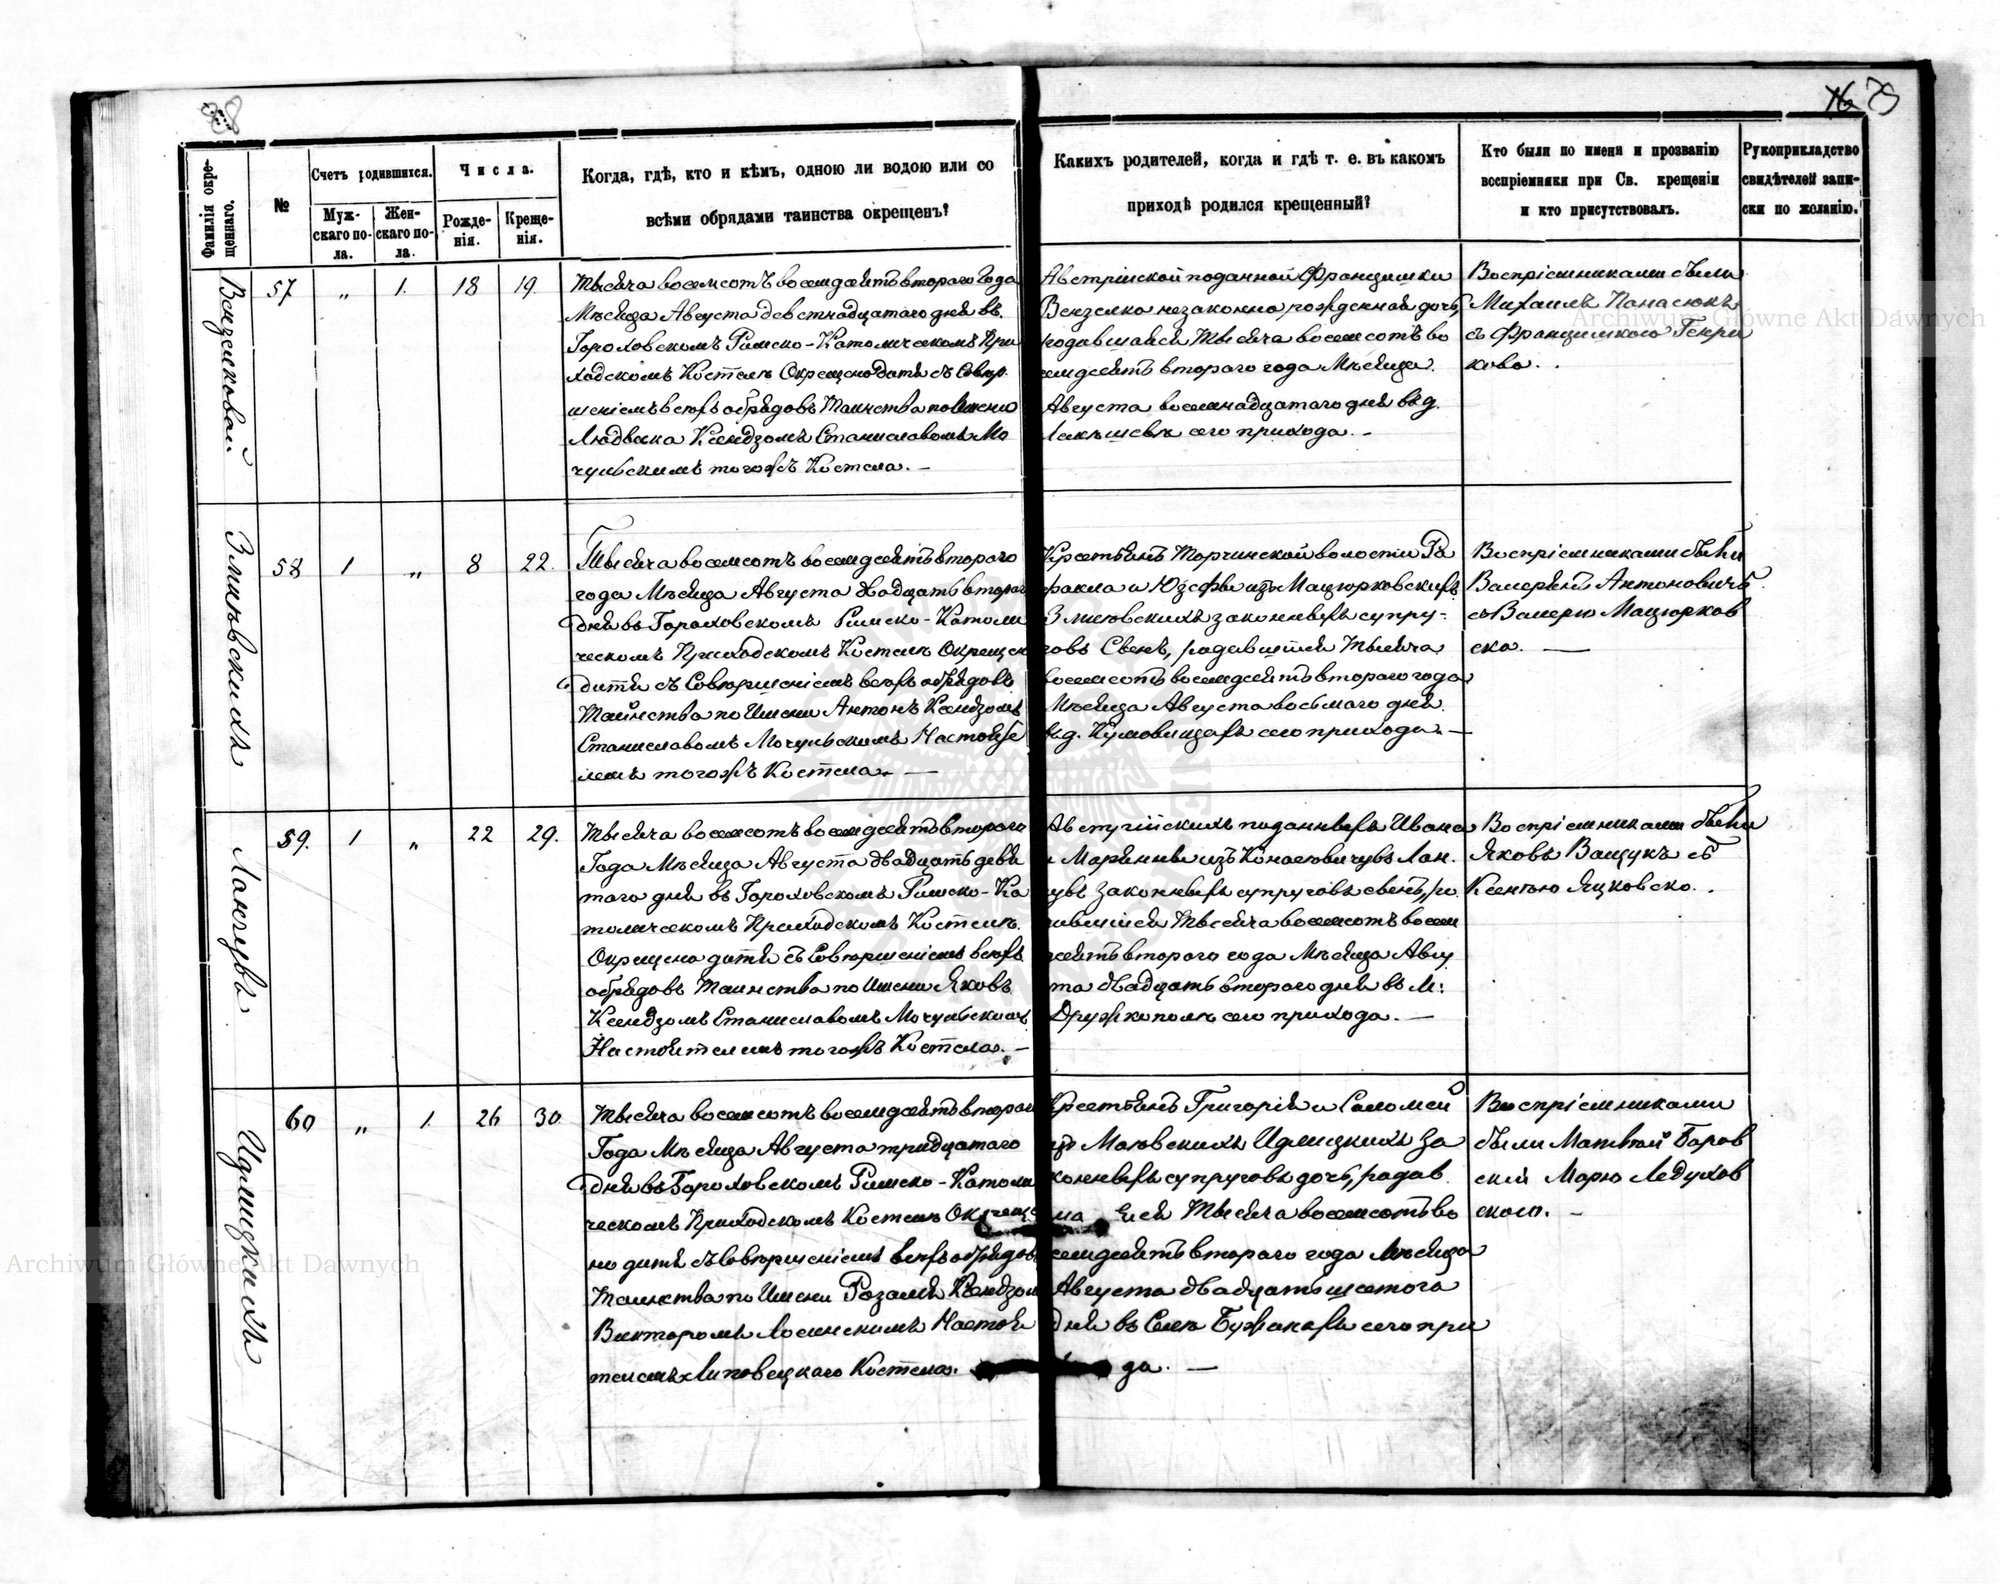 88
76 79
Фамилія окре-
щеннаго.
№
Счетъ родившихся.
Муж-
скаго по-
ла.
Жен-
скаго по-
ла.
Числа.
Рожде-
нія.
Креще-
нія.
Когда, гдѣ, кто и кѣмъ, одною ли водою или со
всѣми обрядами таинства окрещенъ?
Какихъ родителей, когда и гдѣ т. е. въ какомъ
приходѣ родился крещенный?
Кто были по имени и прозванію
воспріемники при Св. крещеніи
и кто присутствовалъ.
Рукоприкладство
свидѣтелей запи-
ски по желанію.
Вензелковой
57 „ 1. 18 19.
Тысяча восемсотъ восемдесятъ второго Года
Мѣсяца Августа девстнадцатого дня въ
Гороховскомъ Римско-Католическомъ При
ходскомъ Костелѣ Окрещено Дитя съ Совер
шеніемъ всѣхъ обрядовъ Таинства по Имени
Людвика Ксендзомъ Станиславомъ Мо
чульскимъ тогожъ Костела. —
Австрійской поданной Францишки
Вензелко незаконно рожденная дочь,
родившаяся Тысяча восемсотъ во
семдесятъ второго года Мѣсяца
Августа восемнадцатого дня въ д.
сего прихода. —
Воспріемниками были
Михаилъ Панасюкъ
съ Францишкою Генри
ково. .
Змиѣвскихъ
58 1 „ 8 22.
Тысяча восемсотъ восемдесятъ второго
года Мѣсяца Августа Двадцатъ второго
дня въ Гороховскомъ Римско-Католи
ческомъ Приходскомъ Костелѣ Окрещено
дитя съ Совершеніемъ всѣхъ обрядовъ
Таинства по Имени Антонъ Ксендзомъ
Станиславомъ Мочульскимъ Настояте
лемъ тогожъ Костела. —
Крестьянъ Торчинской волости Ра
фаила и Юзефы изъ Мацюрковскихъ
Змиовскихъ законныхъ супру-
говъ Сынъ, родившійся Тысяча
восемсотъ восемдесятъ второго года
Мѣсяца Августа восьмого дня
въ д. сего прихода. —
Воспріемниками были
Валеріянъ Антоновичъ
съ Валерію Мацюрков
ско. —
Лангувъ
59. 1 „ 22 29.
Тысяча восемсотъ восемдесятъ второго
Года Мѣсяца Августа двадцатъ девя
того дня въ Гороховскомъ Римско-Ка
толическомъ Приходскомъ Костелѣ
Окрещено дитя съ Совершеніемъ всѣхъ
обрядовъ Таинства по Имени Яковъ
Ксендзомъ Станиславомъ Мочульскимъ
Настоятелемъ тогожъ Костела. —
Австрійскихъ поданныхъ Ивана
и Марянны изъ Лан-
гувъ законныхъ супруговъ сынъ, ро
дившійся Тысяча восемсотъ восем
десятъ второго года Мѣсяца Авгу
ста двадцатъ второго дня въ М:
Дружкополѣ сего прихода. —
Воспріемниками были
Яковъ Ващукъ съ
Ксенію Яцковско. .
Идлицкихъ
60 „ 1 26 30
Тысяча восемсотъ восемдесятъ второго
Года Мѣсяца Августа тридцатого
дня въ Гороховскомъ Римско-Католи
ческомъ Приходскомъ Костелѣ Окреще
но дитя съ Совершеніемъ всѣхъ обрядовъ
Таинства по Имени Розалія Ксендзомъ
Викторомъ Настоя
телемъ Липовецкаго Костела.
Крестьянъ Григорія и Саломей
изъ Маювскихъ Идлицкихъ за
конныхъ супруговъ дочь, родив
шася Тысяча восемсотъ во
семдесятъ второго года Мѣсяца
Августа двадцатъ шестого
дня въ Селѣ Бужанахъ сего при
да. —
Воспріемниками
были Матвѣй Боров
скій Марю Ледухов
скою. —
Archiwum Główne Akt Dawnych
Archiwum Główne Akt Dawnych